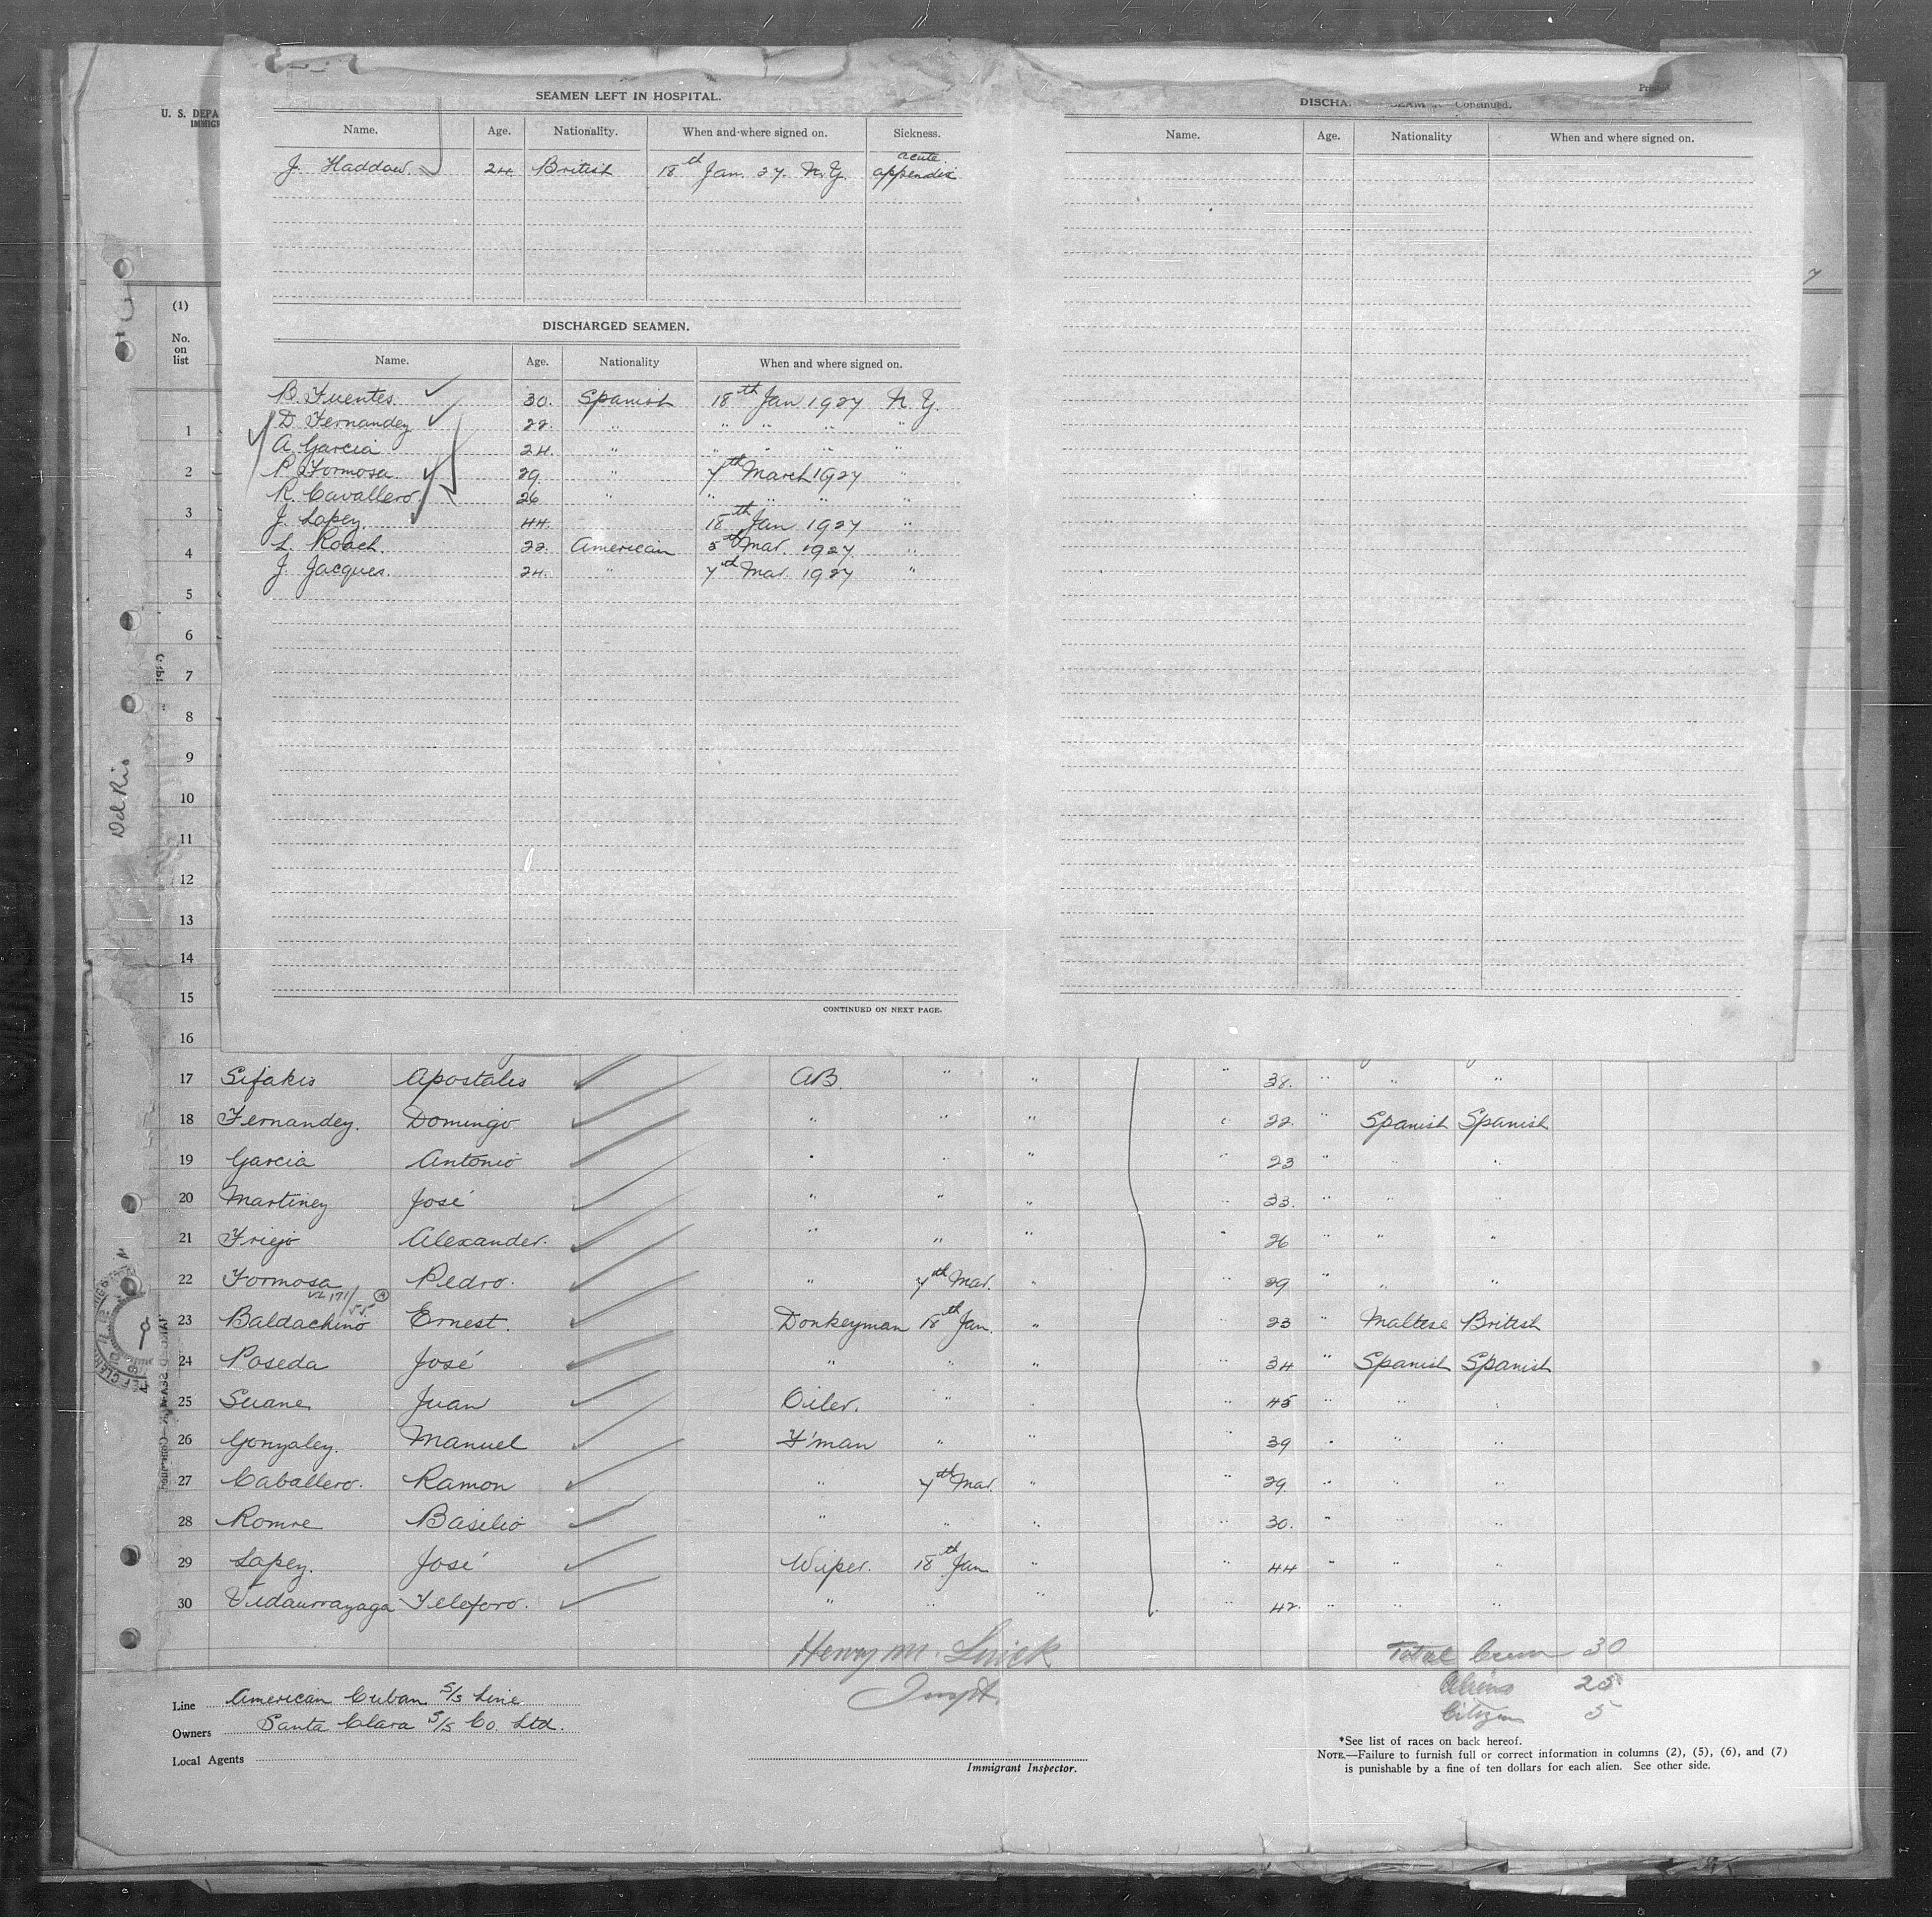 U. S. DEPA
IMMIGR
SEAMEN LEFT IN HOSPITAL.
Name. Age. Nationality. When and where signed on. Sickness.
J. Haddow. 24. British 18th Jan. 27. N.Y. acute appendix
DISCHARGED SEAMEN.
Name. Age. Nationality When and where signed on.
B. Fuentes 30. Spanish 18th Jan 1927 N.Y.
D. Fernandez 22. " " " " "
A. Garcia 24. " " " " "
P. Formosa. 29. " 7th March 1927 "
R. Cavallero. 26 " " " " "
J. Lopez. 44. 18th Jan 1927 "
L. Roach. 22. American 5th Mar. 1927. "
J. Jacques. 24. " 7th Mar. 1927 "
CONTINUED ON NEXT PAGE.
DISCHA. SEAM Continued.
Name. Age. Nationality When and where signed on.
(1)
No. on list
1
2
3
4
5
6
7
8
9
10
11
12
13
14
15
16
17 Sifakis Apostalis AB. " " " 38. " " "
18 Fernandez. Domingo " " " " 22. " Spanish Spanish
19 Garcia Antonio " " " 23 " " "
20 Martinez José " " " 33. " " "
21 Friejo Alexander. " " " " 26 " " "
22 Formosa Pedro. " 7th Mar. " " 29 " " "
23 Baldachino Ernest. Donkeyman 18th Jan. " " 23 " Maltese British
24 Poseda José " " " " 34 " Spanish Spanish
25 Suane Juan Oiler. " " " 45 " " "
26 Gonzalez. Manuel F'man " " " 39 " " "
27 Caballero. Ramon " 7th Mar. " " 29. " " "
28 Romre Basilio " " " " 30. " " "
29 Lopez. José Wiper. 18th Jan " " 44 " " "
30 Vidaurrazaga Teleforo. " " " " 42. " " "
Del Rio
Henry M.
Inspt.
Total Crew 30
Aliens 25
Citizen 5
Line American Cuban S/S Line
Owners Santa Clara S/S Co. Ltd.
Local Agents
Immigrant Inspector.
*See list of races on back hereof.
NOTE.—Failure to furnish full or correct information in columns (2), (5), (6), and (7)
is punishable by a fine of ten dollars for each alien. See other side.